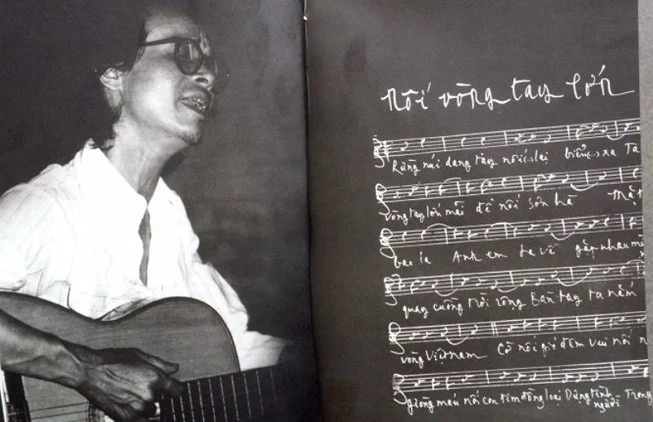 Nối vòng tay lớn
Rừng núi dang tay nối lại biển xa Ta
vòng tay lớn mãi để nối sơn hà Mặt
bao la Anh em ta về gặp nhau m
quay cuồng trời rộng Bàn tay ta nắm
vòng Việt Nam Cờ nối gió đêm vui nối n
giòng máu nối con tim đồng loại Dựng tình người Trong